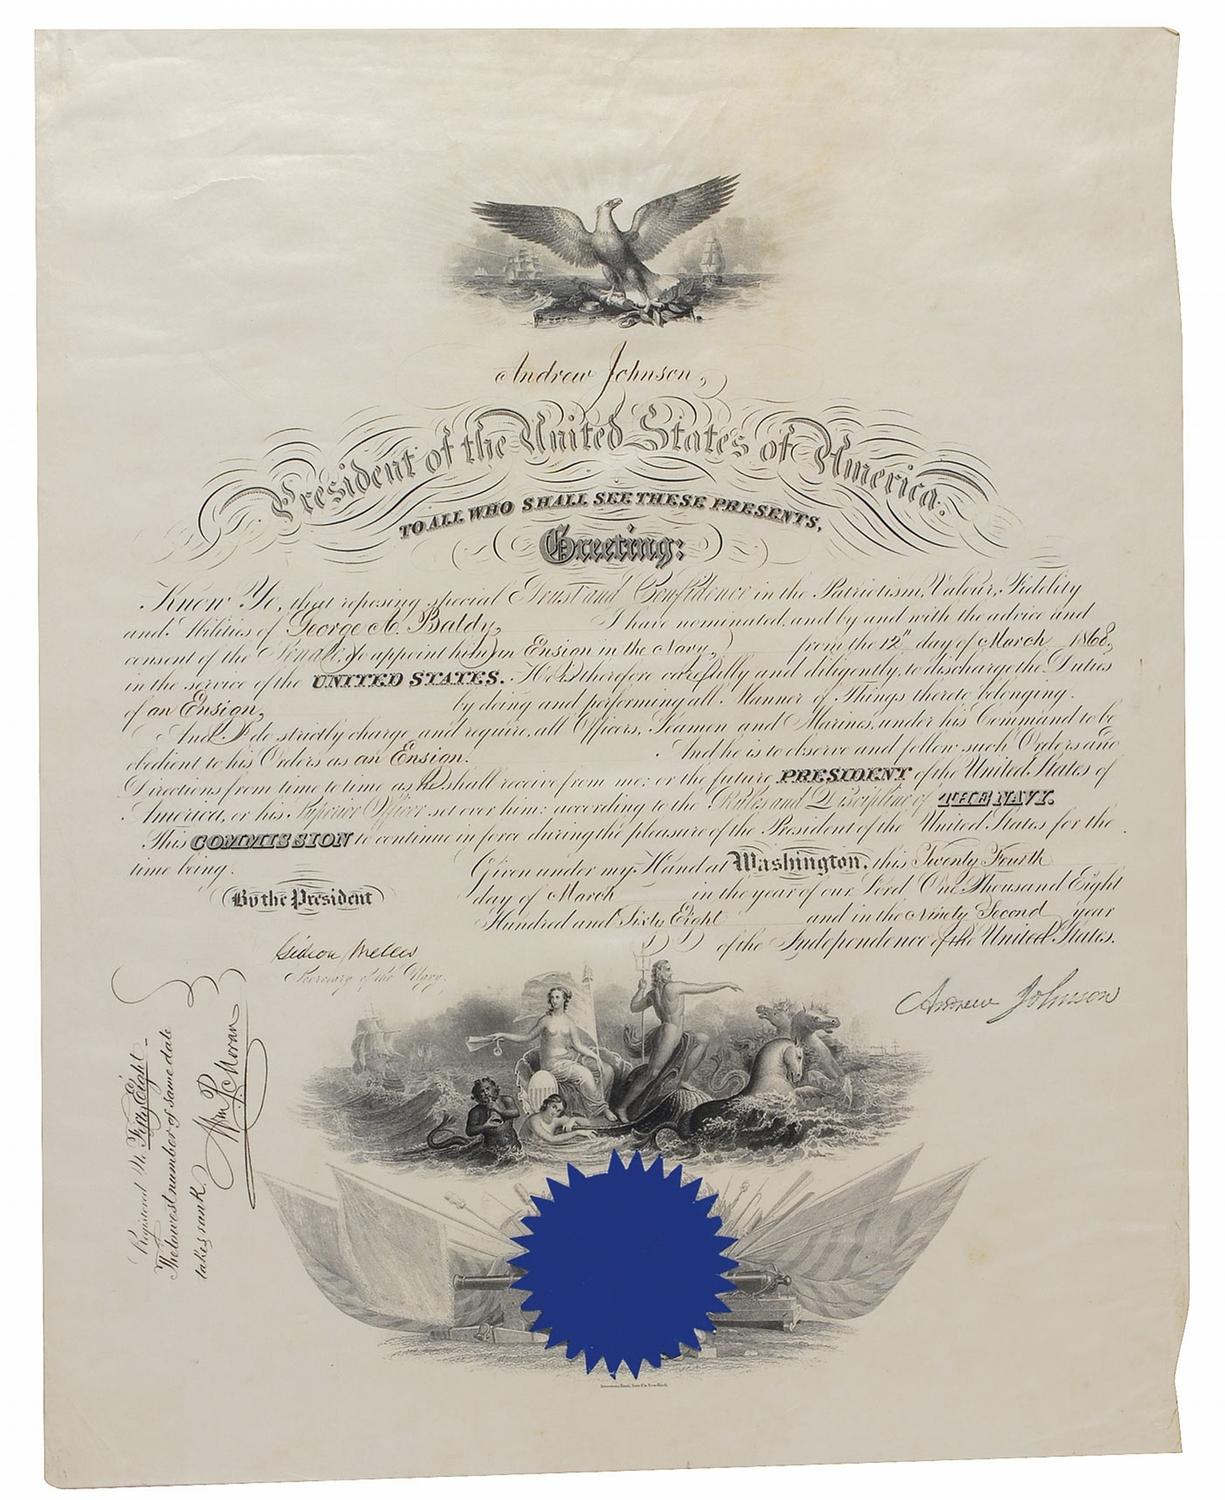 Andrew Johnson,
President of the United States of America.
TO ALL WHO SHALL SEE THESE PRESENTS,
Greeting:
Know Ye, that reposing special Trust and Confidence in the Patriotism, Valour, Fidelity
and Abilities of George A. Baldy, I have nominated and by and with the advice and
consent of the Senate, do appoint him an Ensign in the Navy, from the 12th day of March 1868,
in the service of the UNITED STATES. He is therefore carefully and diligently, to discharge the Duties
of an Ensign, by doing and performing all Manner of Things thereto belonging.
And I do strictly charge and require, all Officers, Seamen and Marines, under his Command to be
obedient to his Orders as an Ensign. And he is to observe and follow such Orders and
Directions from time to time as he shall receive from me: or the future PRESIDENT of the United States of
America, or his Superior Officer set over him: according to the Rules and Discipline of THE NAVY.
This COMMISSION to continue in force during the pleasure of the President of the United States for the
time being. Given under my Hand at Washington, this Twenty Fourth
By the President day of March in the year of our Lord One Thousand Eight
Hundred and Sixty Eight and in the Ninety Second year
of the Independence of the United States.
Gideon Welles
Secretary of the Navy.
Andrew Johnson
Registered No. Fifty Eight
The lowest number of same date
takes rank.